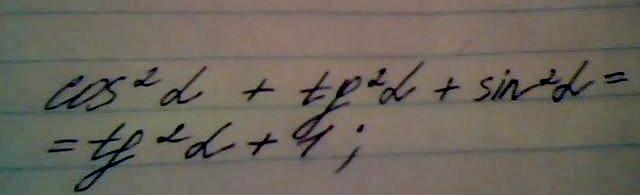 cos²α + tg²α + sin²α =
= tg²α + 1;